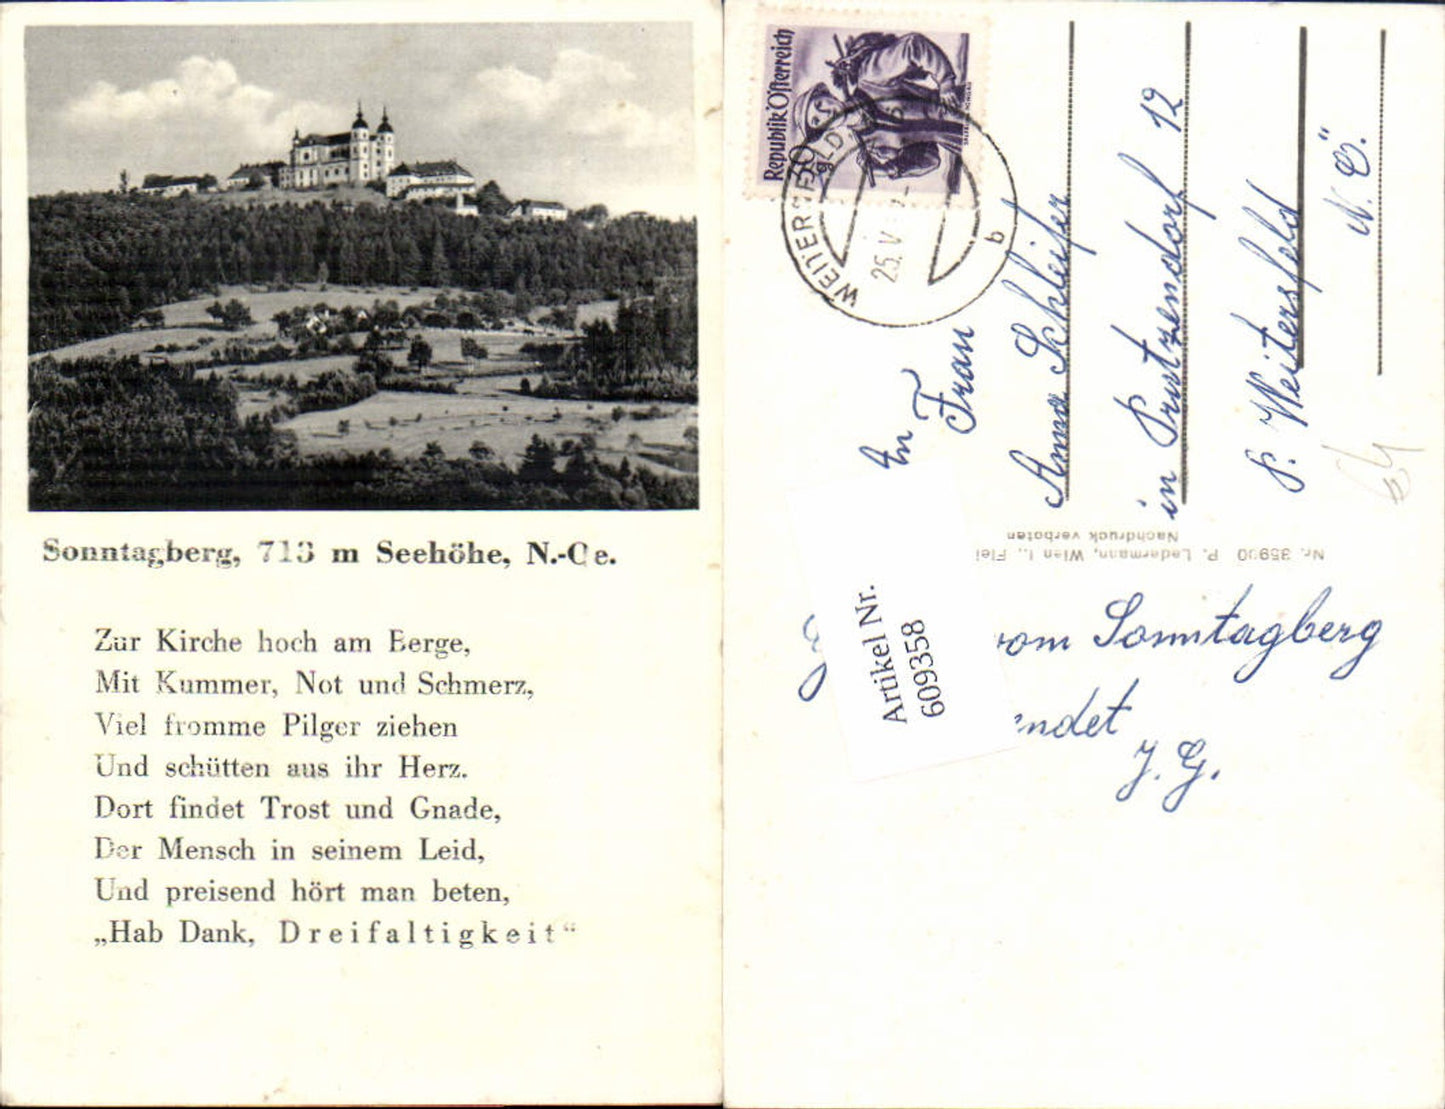 Sonntagberg, 713 m Seehöhe, N.-Oe.
Zur Kirche hoch am Berge,
Mit Kummer, Not und Schmerz,
Viel fromme Pilger ziehen
Und schütten aus ihr Herz.
Dort findet Trost und Gnade,
Der Mensch in seinem Leid,
Und preisend hört man beten,
„Hab Dank, Dreifaltigkeit“
Republik Österreich
25. V
b
An
Frau
Anna Schleifer
in Prutzendorf 12
P. Weitersfeld
N. Ö.
64
Nr. 35900 P. Ledermann, Wien I.,
Nachdruck verboten
Artikel Nr.
609358
vom Sonntagberg
endet
J. G.